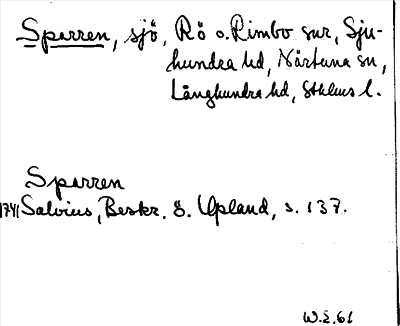 Sparren, sjö, Rö o. Rimbo snr, Sju-
hundra hd, Närtuna sn,
Långhundra hd, Sthlms l.
Sparren
1741 Salvius, Beskr. ö. Upland, s. 137.
W.E. 61